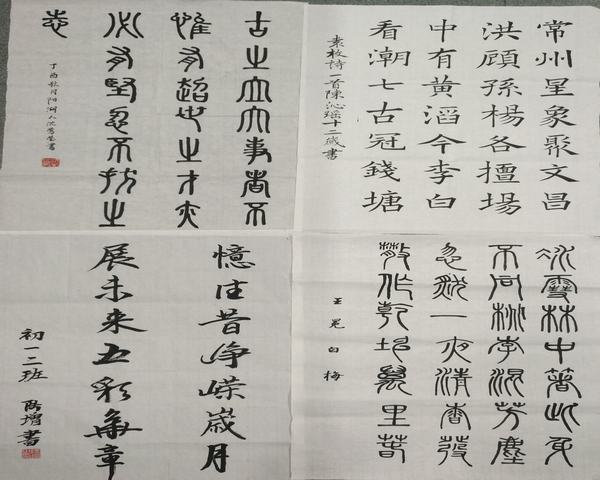 古之立大事者不
惟有超世之才亦
必有堅忍不拔之
志
丁酉秋月阳湖人沈書
常州星象聚文昌
洪顧孫楊各擅場
中有黄滔今李白
看潮七古冠錢塘
袁枚詩一首陳沁瑶十二歲書
憶往昔崢嶸歲月
展未来五彩華章
初一二班
增書
冰雪林中著此身
不同桃李混芳塵
忽然一夜清香發
散作乾坤萬里春
王冕白梅